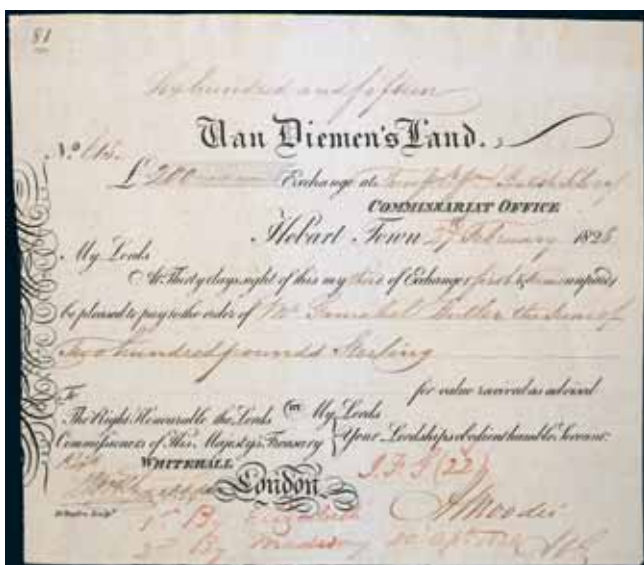 81
Six hundred and fifteen
Van Diemen's Land.
No. 615.
£ 200 Exchange at
COMMISSARIAT OFFICE
Hobart Town 27 February 1828
My Lords
At Thirty days sight of this my third of Exchange first & second unpaid
be pleased to pay to the order of Mr. Butler the Sum of
Two hundred pounds Sterling
for value received as advised
To
The Right Honourable the Lords My Lords
Commissioners of His Majesty's Treasury Your Lordships obedient humble Servant
WHITEHALL
London.
A Moodie
1st By Elizabeth
2nd By